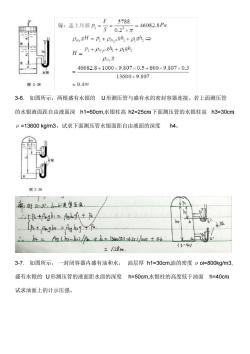 解:盖上压强 p₁ = F/S = 5788/(0.2²×π) = 46082.8Pa
ρ汞gH = p₁ + ρ水gh₂ + ρ油gh₁ ⇒
H = (p₁ + ρ水gh₂ + ρ油gh₁)/(ρ汞g)
= (46082.8+1000×9.807×0.5+800×9.807×0.3)/(13600×9.807)
= 0.4m
3-6. 如图所示,两根盛有水银的 U形测压管与盛有水的密封容器连接。若上面测压管
的水银液面距自由液面深 h1=60cm,水银柱高 h2=25cm下面测压管的水银柱高 h3=30cm
ρ =13600 kg/m3,试求下面测压管水银面距自由液面的深度 h4。
= 1.28m
3-7. 如图所示, 一封闭容器内盛有油和水, 油层厚 h1=30cm,油的密度 ρ oi=800kg/m3,
盛有水银的 U形测压管的液面距水面的深度 h=50cm,水银柱的高度低于油面 h=40cm
试求油面上的计示压强。